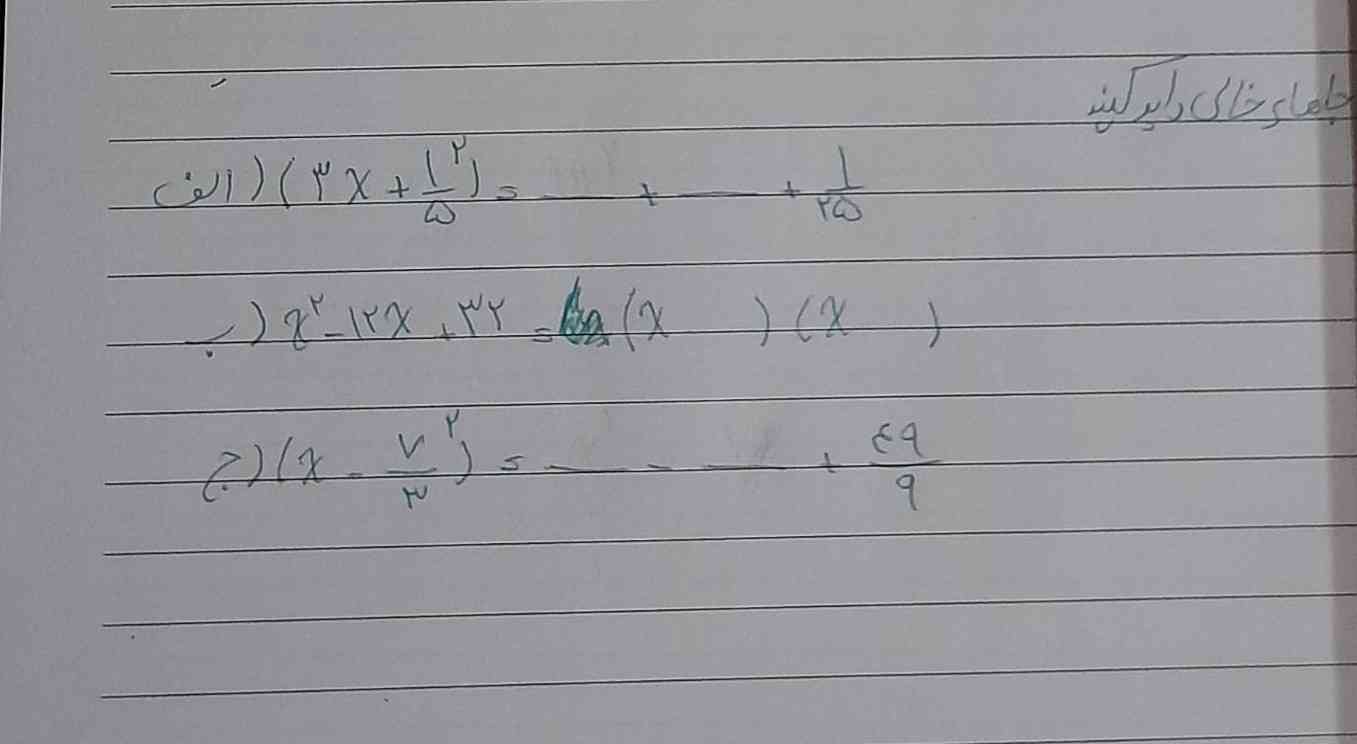 جاهای خالی را پر کنید
الف) (۳x + ۱/۵)^۲ = __ + __ + ۱/۲۵
ب) x^۲ - ۱۲x + ۳۲ = (x    ) (x    )
ج) (x - ۷/۳)^۲ = __ - __ + ۴۹/۹